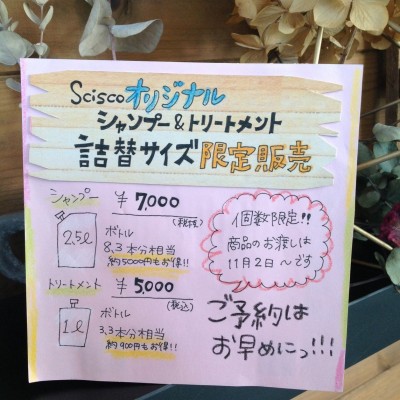 Sciscoオリジナル
シャンプー&トリートメント
詰替サイズ限定販売
シャンプー ¥7,000
(税抜)
2.5ℓ
ボトル
8.3本分相当
約5000円もお得!!
トリートメント ¥5,000
(税込)
1ℓ
ボトル
3.3本分相当
約900円もお得!!
個数限定!!
商品のお渡しは
11月2日〜です
ご予約は
お早めにっ!!!